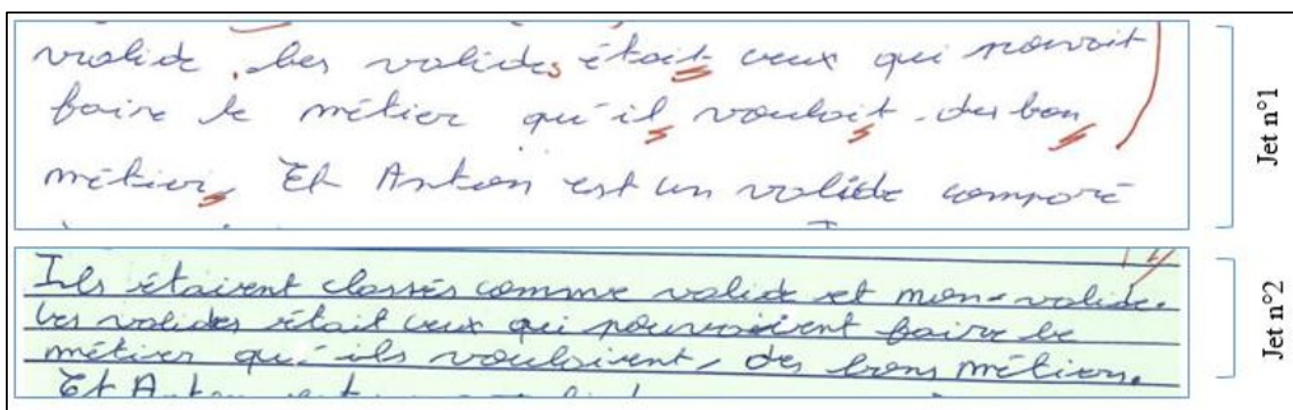 valide. Les valides était ceux qui pouvait
faire le métier qu'il voulait. des bon
métier, Et Anton est un valide comparé
Jet n°1
Ils étaient classés comme valide et non-valide.
Les valides était ceux qui pouvaient faire le
métier qu'ils voulaient, des bons métiers.
Et Anton
Jet n°2